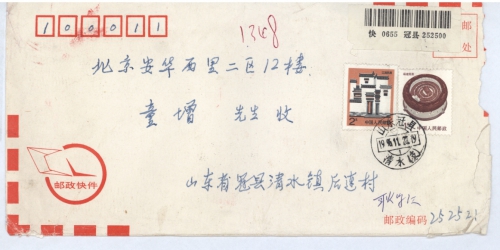 100011
1348
快 0655 冠县 252500
邮
处
北京安华西里二区12楼
童增 先生 收
中国人民邮政
中国人民邮政
山东冠县
清水镇
邮政快件
山东省冠县清水镇后连村
邮政编码 252521